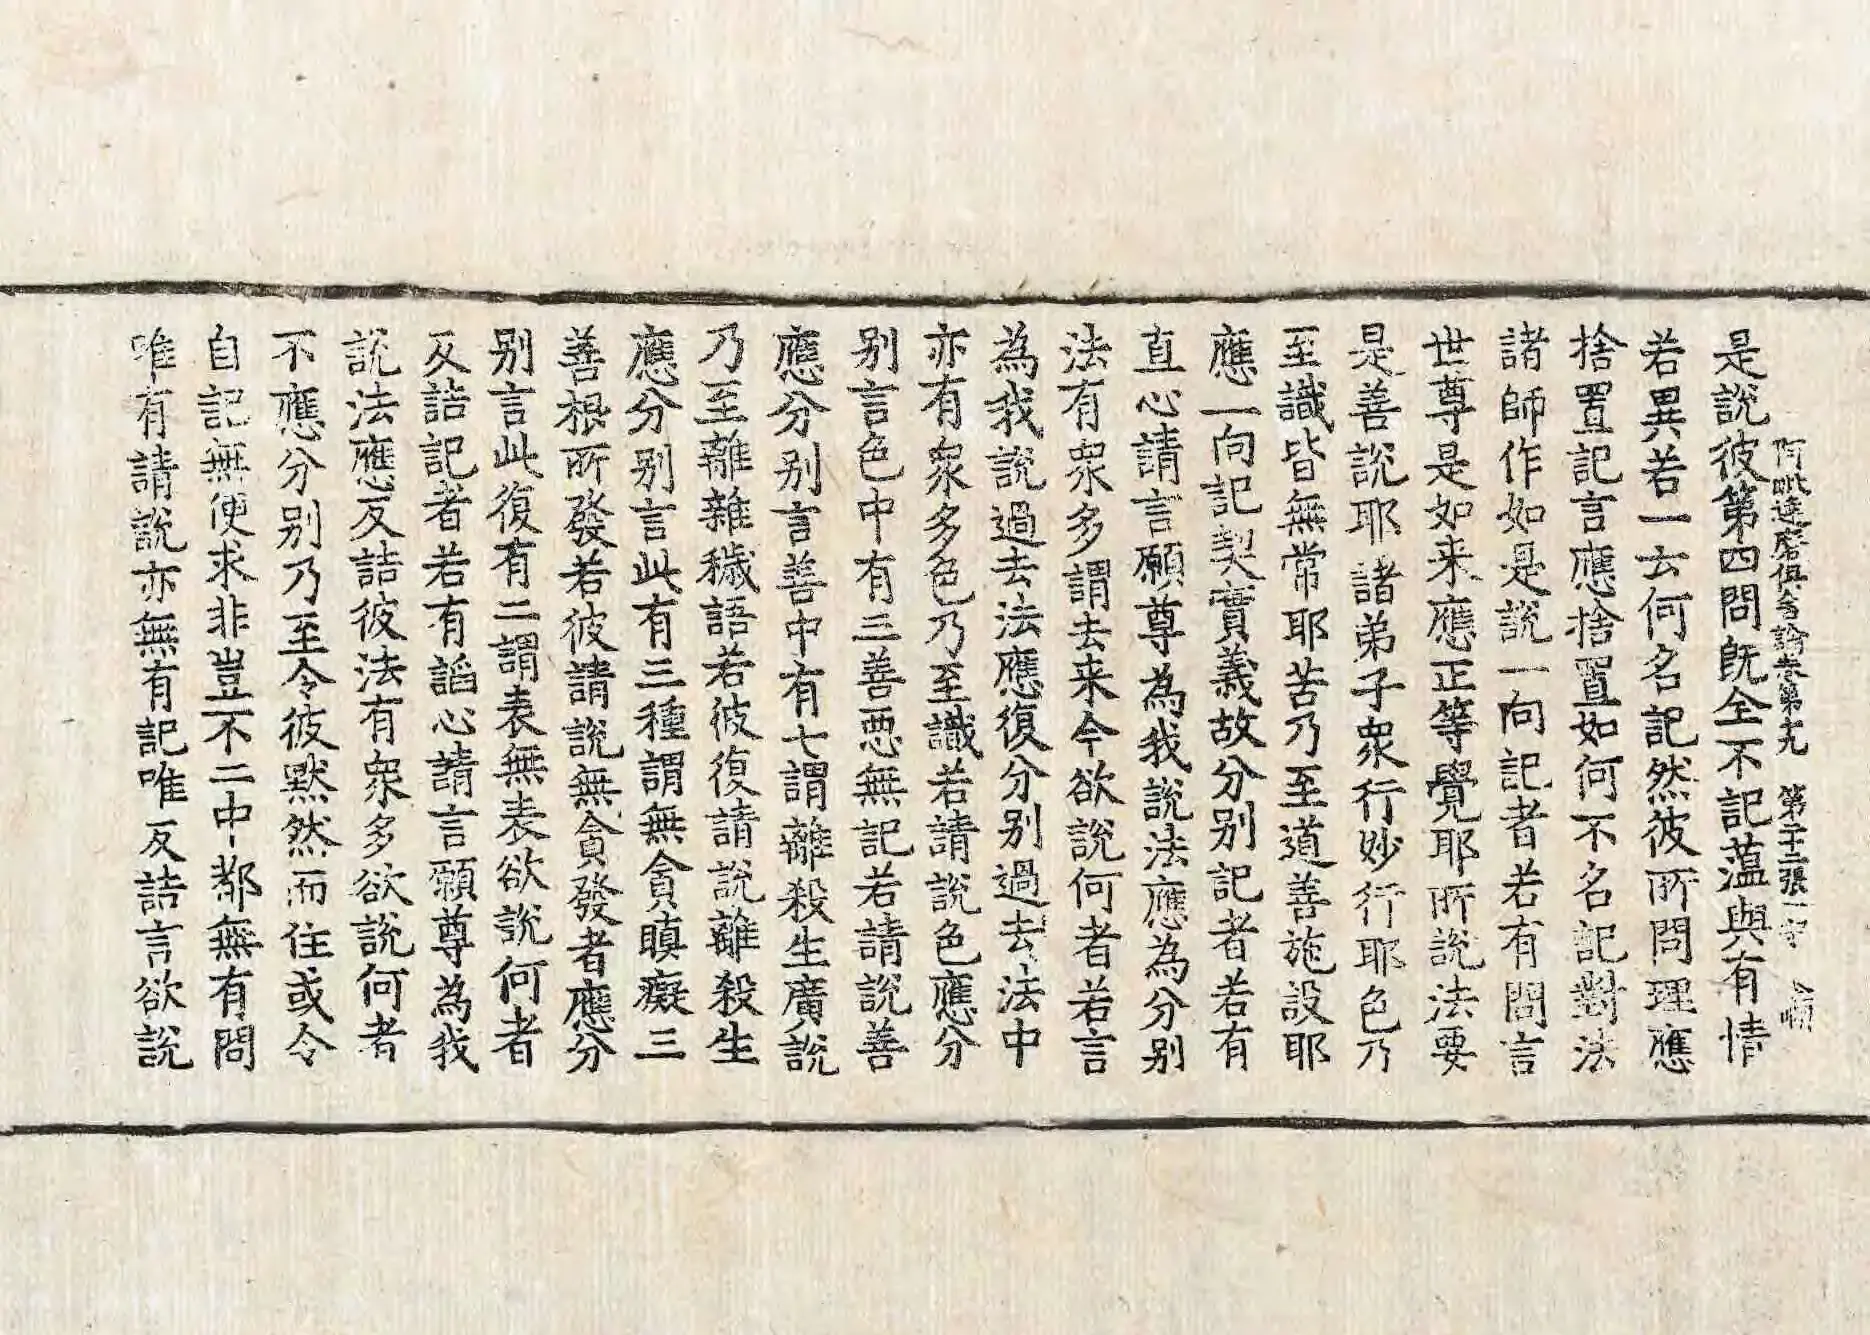 阿毗達磨俱舍論卷第十九 第二張
是說彼第四問既全不記薀與有情
若異若一云何名記然彼所問理應
捨置記言應捨置如何不名記對法
諸師作如是說一向記者若有問言
世尊是如来應正等覺耶所說法要
是善說耶諸弟子衆行妙行耶色乃
至識皆無常耶苦乃至道善施設耶
應一向記契實義故分别記者若有
直心請言願尊為我說法應為分别
法有衆多謂去来今欲說何者若言
為我說過去法應復分别過去法中
亦有衆多色乃至識若請說色應分
别言色中有三善惡無記若請說善
應分别言善中有七謂離殺生廣說
乃至離雜穢語若彼復請說離殺生
應分别言此有三種謂無貪瞋癡三
善根所發若彼請說無貪發者應分
别言此復有二謂表無表欲說何者
反詰記者若有謟心請言願尊為我
說法應反詰彼法有衆多欲說何者
不應分别乃至令彼默然而住或令
自記無便求非豈不二中都無有問
唯有請說亦無有記唯反詰言欲說